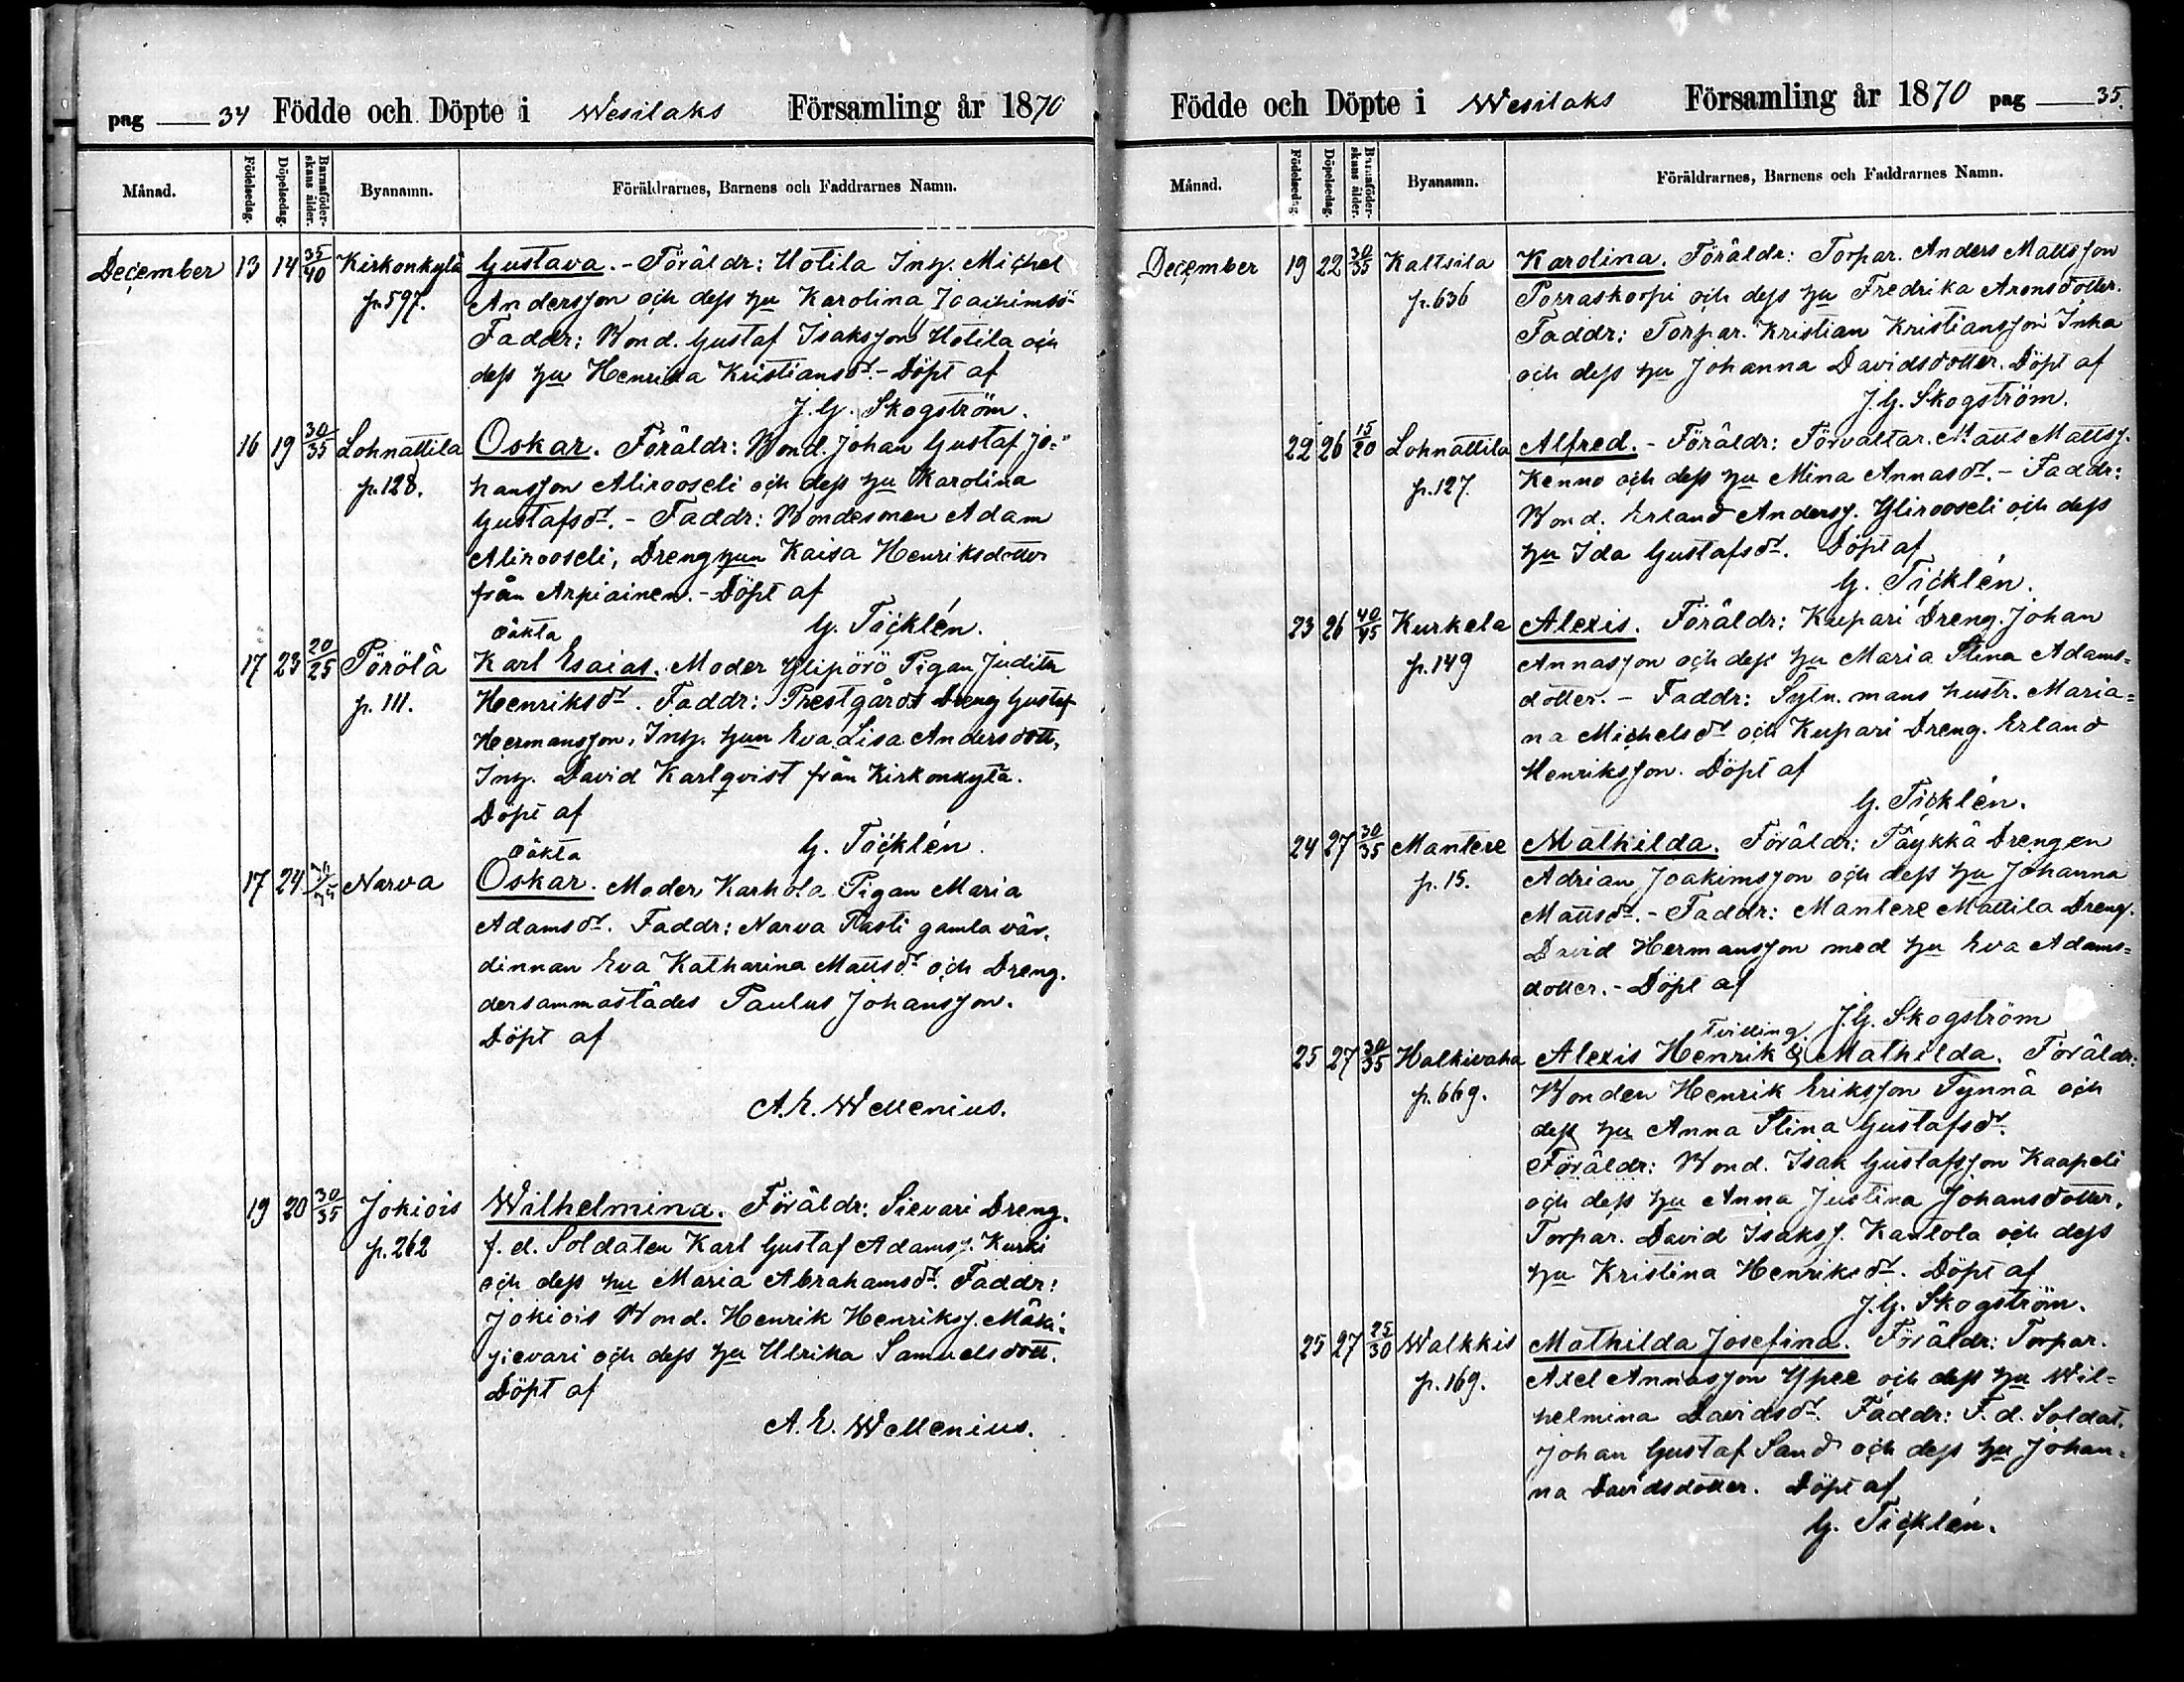 pag 34 Födde och Döpte i Wesilaks Församling år 1870
Månad. Födelsedag. Döpelsedag. Barnaföderskans ålder. Byanamn. Föräldrarnes, Barnens och Faddrarnes Namn.
December 13 14 35/40 Kirkonkylä Gustava. - Föräldr: Hotila Inh. Michel
p. 597. Andersson och dess hu Karolina Joachimsd
Faddr: Bond. Gustaf Isaksson Hotila och
dess hu Henrika Kristiansdr. - Döpt af
J. G. Skogström.
16 19 30/35 Lohnattila Oskar. Föräldr: Bond. Johan Gustaf Jo-
p. 128. hansson Alirooseli och dess hu Karolina
Gustafsdr. - Faddr: Bondesonen Adam
Alirooseli, Dreng hun Kaisa Henriksdotter
från Arpiainen. - Döpt af
G. Ticklén.
oäkta
17 23 20/25 Pörölä Karl Esaias. Moder Ylipörö Pigan Judith
p. 111. Henriksdr. Faddr: Prestgårds Dreng Gustaf
Hermansson, Inh. hun Eva Lisa Andersdott,
Inh. David Karlqvist från Kirkonkylä.
Döpt af
G. Ticklén.
oäkta
17 24 Narva Oskar. Moder Karhola Pigan Maria
Adamsdr. Faddr: Narva Rasti gamla vär-
dinnan Eva Katharina Mattsdr och Dreng.
dersammastädes Paulus Johansson.
Döpt af
A. E. Wellenius.
19 20 30/35 Jokiois Wilhelmina. Föräldr: Sievari Dreng.
p. 262 f. d. Soldaten Karl Gustaf Adamss. Kurki
och dess hu Maria Abrahamsdr. Faddr:
Jokiois Bond. Henrik Henrikss. Mäki-
sievari och dess hu Ulrika Samuelsdott.
Döpt af
A. E. Wellenius.
Födde och Döpte i Wesilaks Församling år 1870 pag 35.
Månad. Födelsedag. Döpelsedag. Barnaföderskans ålder. Byanamn. Föräldrarnes, Barnens och Faddrarnes Namn.
December 19 22 30/35 Kaltsila Karolina. Föräldr: Torpar. Anders Mattsson
p. 636 Porraskorpi och dess hu Fredrika Aronsdotter.
Faddr: Torpar. Kristian Kristiansson Inha
och dess hu Johanna Davidsdotter. Döpt af
J. G. Skogström.
22 26 15/20 Lohnattila Alfred. - Föräldr: Förvaltar. Matts Mattss.
p. 127. Kenno och dess hu Mina Annasdr. - Faddr:
Bond. Erland Anderss. Ylirooseli och dess
hu Ida Gustafsdr. Döpt af
G. Ticklén.
23 26 40/45 Kurkela Alexis. Föräldr: Kupari Dreng. Johan
p. 149 Annasson och dess hu Maria Stina Adams-
dotter. - Faddr: Sytn. mans hustr. Maria-
na Michelsdr och Kupari Dreng. Erland
Henriksson. Döpt af
G. Ticklén.
24 27 30/35 Mantere Mathilda. Föräldr: Päykkä Drengen
p. 15. Adrian Joakimsson och dess hu Johanna
Mattsdr. - Faddr: Mantere Mattila Dreng.
David Hermansson med hu Eva Adams-
dotter. - Döpt af
J. G. Skogström
Tvilling
25 27 30/35 Halkivaha Alexis Henrik & Mathilda. Föräldr:
p. 669. Bonden Henrik Eriksson Tynnä och
dess hu Anna Stina Gustafsdr.
Föräldr: Bond. Isak Gustafsson Kaapeli
och dess hu Anna Justina Johansdotter,
Torpar. David Isakss. Kantola och dess
hu Kristina Henriksdr. Döpt af
J. G. Skogström.
25 27 25/30 Walkkis Mathilda Josefina. Föräldr: Torpar.
p. 169. Axel Annasson Ypee och dess hu Wil-
helmina Davidsdr. Faddr: F. d. Soldat.
Johan Gustaf Sand och dess hu Johan-
na Davidsdotter. Döpt af
G. Ticklén.